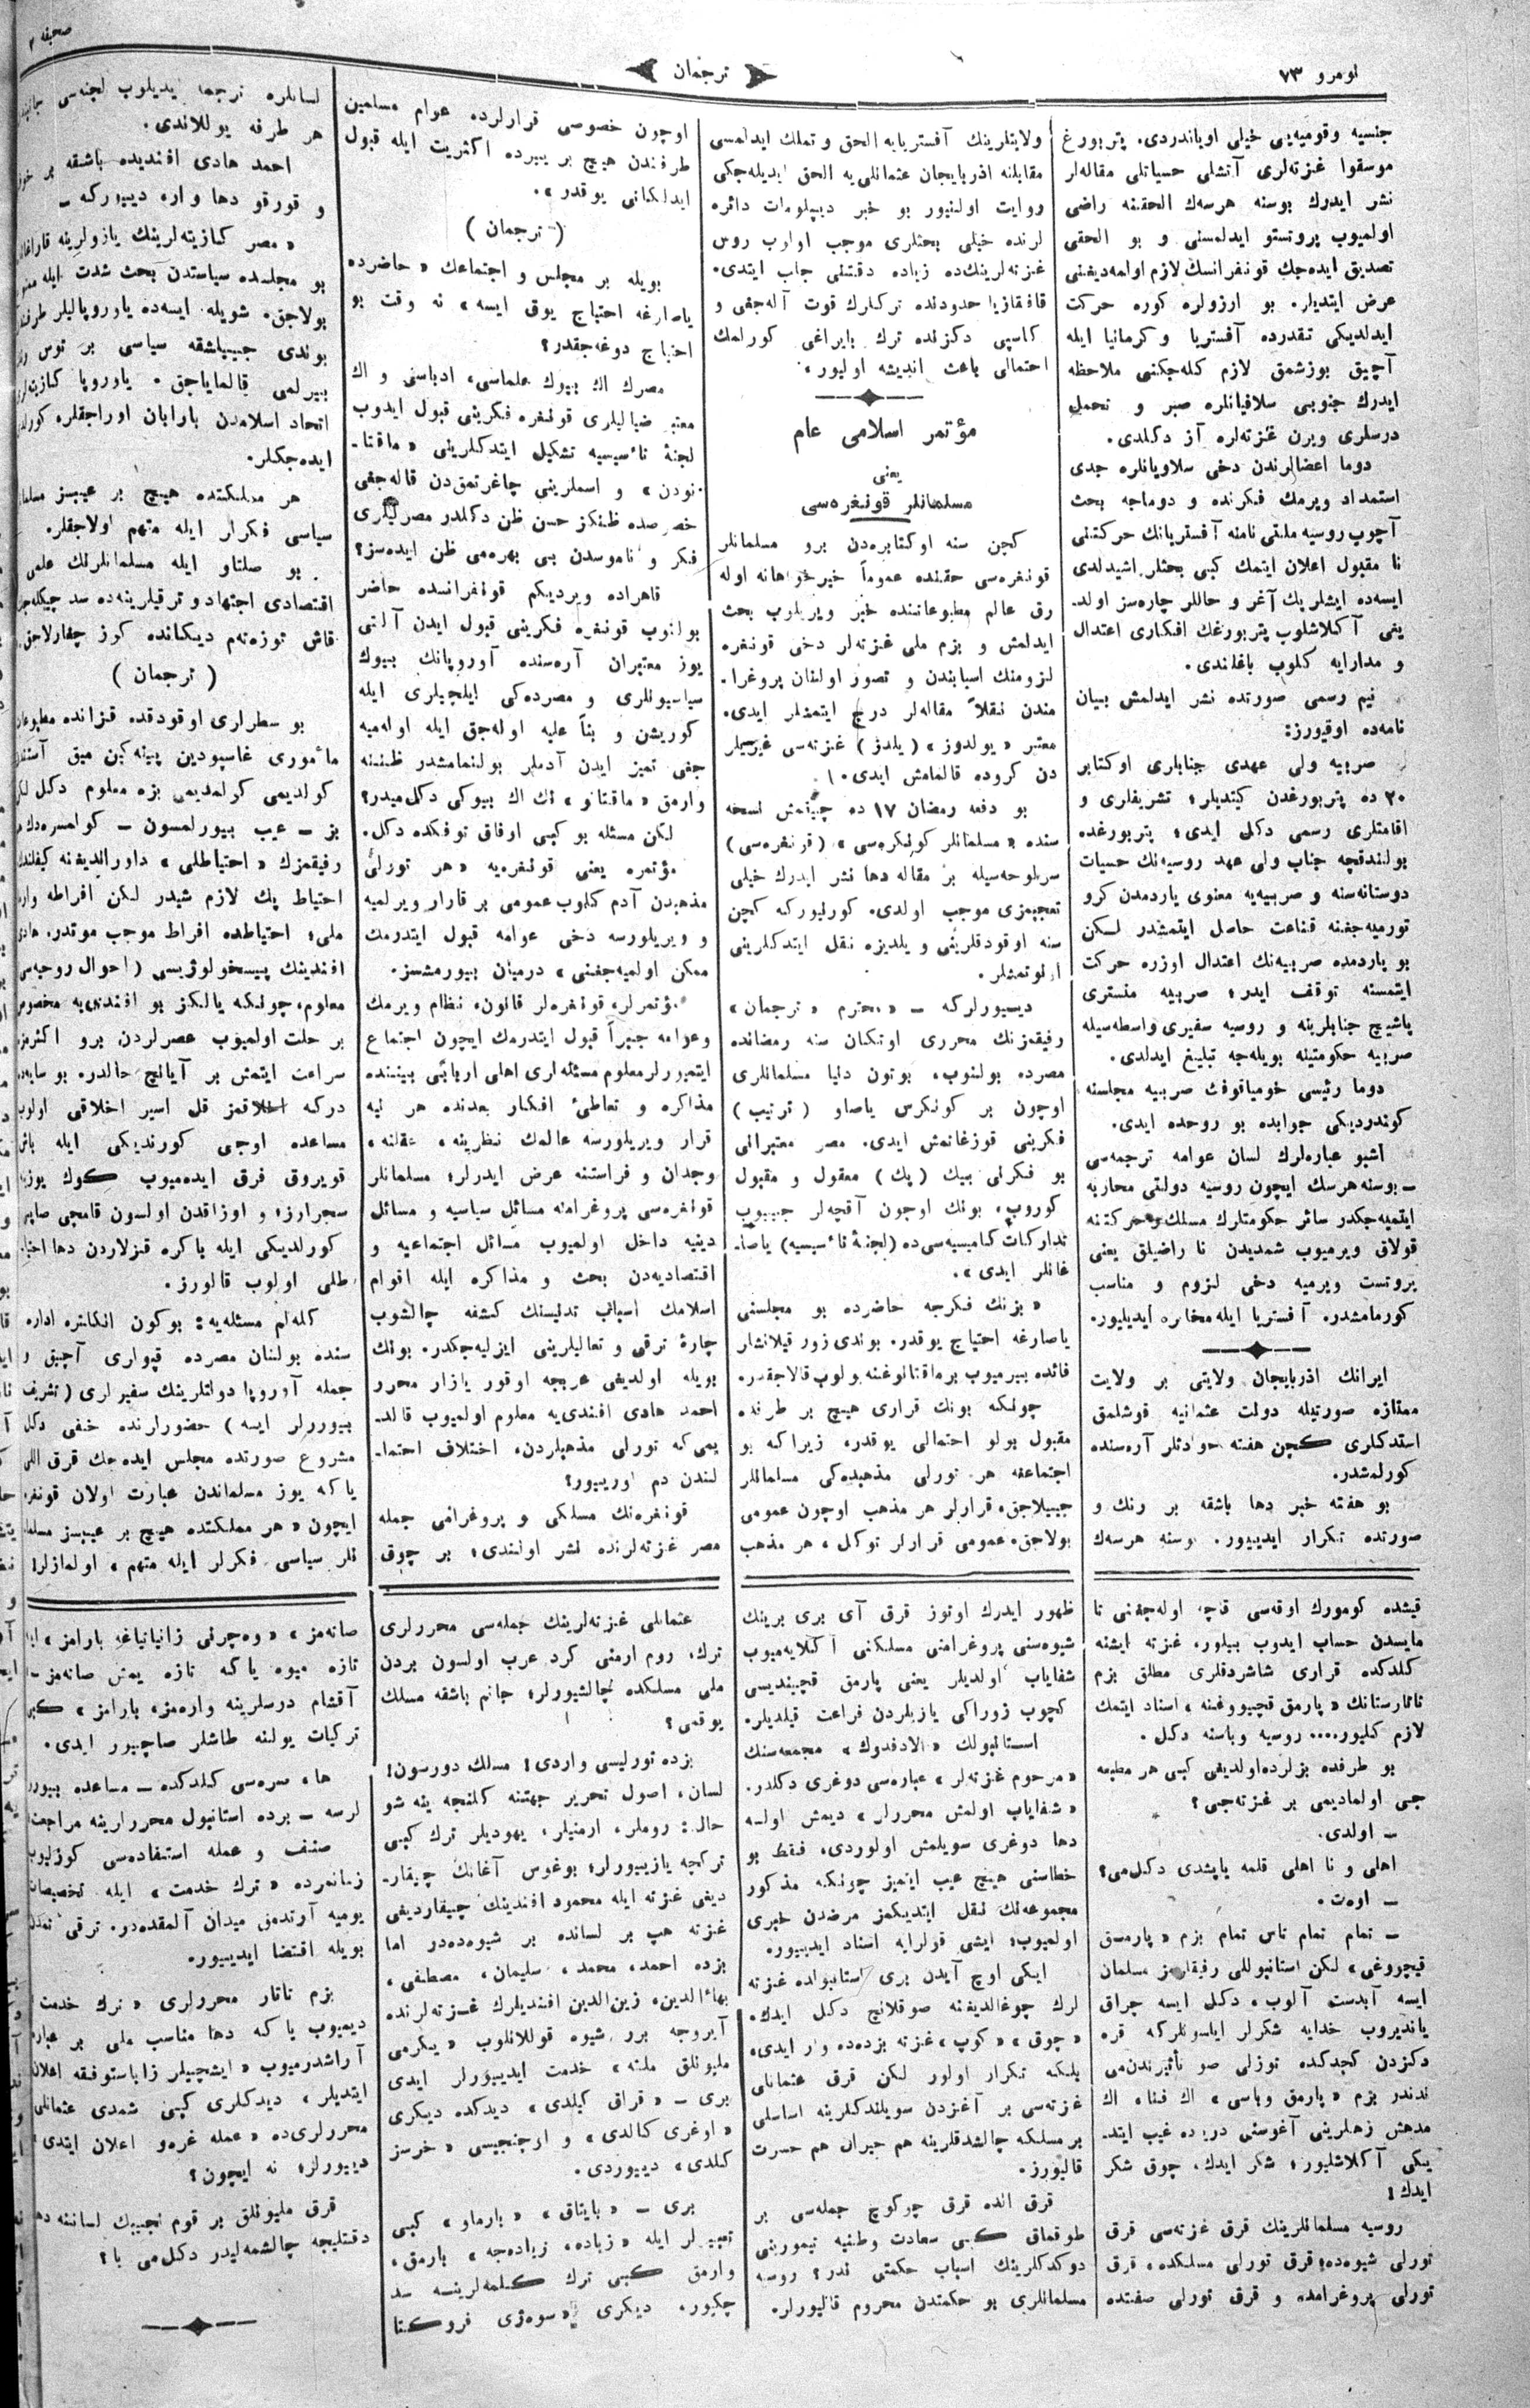 نومرو ۷۳
ترجمان
صحیفه ۲
جنسیه وقومیه‌یی خیلی اویاندردی. پتربورغ
موسقوا غزته‌لری آتشلی حسیاتلی مقاله‌لر
نشر ایدرك بوسنه هرسه‌ك الحقنه راضی
اولمیوب پروتستو ایدلمسنی و بو الحقی
تصدیق ایده‌جك قونفرانسك لازم اولمه‌دیغنی
عرض ایتدیلر. بو ارزولره كوره حركت
ایدلدیكی تقدرده آفستریا و كرمانیا ایله
آچیق بوزشمق لازم كله‌جكنی ملاحظه
ایدرك جنوبی سلافیانلره صبر و تحمل
درسلری ویرن غزته‌لره آز دكلدی.
دوما اعضالرندن دخی سلاویانلره جدی
استمداد ویرمك فكرنده و دوماجه بحث
آچوب روسیه ملتی نامنه آفستریانك حركتنی
نا مقبول اعلان ایتمك كبی بحثلر اشیدلدی
ایسه‌ده ایشلریك آغر و حاللر چاره‌سز اولد-
یغی آكلاشلوب پتربورغك افكاری اعتدال
و مدارایه كلوب باغلندی.
نیم رسمی صورتده نشر ایدلمش بیان
نامه‌ده اوقیورز:
صربیه ولی عهدی جنابلری اوكتابر
۲۰ ده پتربورغدن كیتدیلر؛ تشریفلری و
اقامتلری رسمی دكل ایدی؛ پتربورغده
بولندقچه جناب ولی عهد روسیه‌نك حسیات
دوستانه‌سنه و صربیه‌یه معنوی یاردمدن كرو
تورمیه‌جغنه قناعت حاصل ایتمشدر لسكن
بو یاردمده صربیه‌نك اعتدال اوزره حركت
ایتمسنه توقف ایدر؛ صربیه منستری
پاشیچ جنابلرینه و روسیه سفیری واسطه‌سیله
صربیه حكومتینه بویله‌جه تبلیغ ایدلدی.
دوما رئیسی خومیاقوف صربیه مجلسنه
كوندردیكی جوابده بو روحده ایدی.
اشبو عباره‌لرك لسان عوامه ترجمه‌سی
– بوسنه هرسك ایچون روسیه دولتی محاربه
ایتمیه‌جكدر سائر حكومتلرك مسلك و حركتنه
قولاق ویرمیوب شمدیدن نا راضیلق یعنی
پروتست ویرمیه دخی لزوم و مناسب
كورمامشدر. آفستریا ایله مخابره ایدیلیور.
ایرانك اذربایجان ولایتی بر ولایت
ممتازه صورتیله دولت عثمانیه قوشلمق
استدكلری كچن هفته حوادثلر آره‌سنده
كورلمشدر.
بو هفته خبر دها باشقه بر رنك و
صورتده تكرار ایدیبیور. بوسنه هرسه‌ك
ولایتلرینك آفستریایه الحق و تملك ایدلمسی
مقابلنه اذربایجان عثمانلی‌یه الحق ایدیله‌جكی
روایت اولنیور بو خبر دیپلومات دائره
لرنده خیلی بحثلری موجب اولوب روس
غزته‌لرینك‌ده زیاده دقتنی جلب ایتدی.
قافقازیا حدودنده تركلرك قوت آله‌جغی و
كاسپی دكزنده ترك بایراغی كورلمك
احتمالی باعث اندیشه اولیور.
مؤتمر اسلامی عام
یعنی
مسلمانلر قونغره‌سی
كچن سنه اوكتابره‌دن برو مسلمانلر
قونغره‌سی حقنده عموماً خیرخواهانه اوله
رق عالم مطبوعاتنده خبر ویریلوب بحث
ایدلمش و بزم ملی غزته‌لر دخی قونغره
لزومنك اسبابندن و تصور اولنان پروغرا-
مندن نقلاً مقاله‌لر درج ایتمشلر ایدی.
معتبر «یولدوز» (یلدز) غزته‌سی غیریلر
دن كروده قالمامش ایدی.
بو دفعه رمضان ۱۷ ده چیقمش نسخه
سنده «مسلمانلر كونكره‌سی» (قونغره‌سی)
سرلوحه‌سیله بر مقاله دها نشر ایدرك خیلی
تعجبمزی موجب اولدی. كورلیوركه كچن
سنه اوقودقلرینی و یلدیزه نقل ایتدكلرینی
اونوتمشلر.
دیسیورلركه – «محترم «ترجمان»
رفیقمزنك محرری اوتكان سنه رمضانده
مصرده بولنوب، بوتون دنیا مسلمانلری
اوچون بر كونكرس یاصاو (ترتیب)
فكرینی قوزغاتمش ایدی. مصر معتبرانی
بو فكرنی بیك (پك) معقول و مقبول
كوروب، بونك اوچون آقچه‌لر جییوب
تداركات كامیسیه‌سی‌ده (لجنهٔ تأسیسیه) یاصا-
غانلر ایدی».
«بزنك فكرجه حاضرده بو مجلسنی
یاصارغه احتیاج یوقدر. بوندی زور قیلانشلر
فائده بیرمیوب بر ماقتانوغنه بولوب قالاجقدر.
چونكه بونك قراری هیچ بر طرفده
مقبول بولو احتمالی یوقدر، زیراكه بو
اجتماعغه هر تورلی مذهبده‌كی مسلمانلر
جیییلاجق، قرارلر هر مذهب اوچون عمومی
بولاجق، عمومی قرارلر توكل، هر مذهب
اوچون خصوصی قرارلرده عوام مسلمین
طرفندن هیچ بر ییرده اكثریت ایله قبول
ایدلكانی یوقدر».
(ترجمان)
بویله بر مجلس و اجتماعك «حاضرده
یاصارغه احتیاج یوق ایسه» نه وقت بو
احتیاج دوغه‌جقدر؟
مصرك اك بیوك علماسی، ادباسی و اك
معتبر ضیالیلری قونغره فكرینی قبول ایدوب
لجنهٔ تأسیسیه تشكیل ایتدكلرینی «ماقتا-
نودن» و اسملرینی چاغرتمق‌دن قاله‌جغی
خصوصده ظنكز حسن ظن دكلدر مصرلیلری
فكر و ناموسدن بی بهره‌می ظن ایده‌سز؟
قاهراده ویردیكم قونفرانسده حاضر
بولنوب قونغره فكرینی قبول ایدن آلتی
یوز معتبران آره‌سنده آوروپانك بیوك
سیاسیونلری و مصرده‌كی ایلچیلری ایله
كوریشن و بناً علیه اوله‌جق ایله اوله‌میه
جغی تمیز ایدن آدملر بولنمامشدر ظننه
وارمق «ماقتانو» نك اك بیوكی دكل‌میدر؟
لكن مسئله بو كبی اوفاق توفكده دكل.
مؤتمره یعنی قونغره‌یه «هر تورلی
مذهبدن آدم كلوب عمومی بر قرار ویرلمیه
و ویریلورسه دخی عوامه قبول ایتدرمك
ممكن اولمیه‌جغنی» درمیان بیورمشسز.
مؤتمرلر، قونغره‌لر قانون، نظام ویرمك
وعوامه جبراً قبول ایتدرمك ایچون اجتماع
ایتمیورلر معلوم مسئله‌لری اهلی اربابی بیننده
مذاكره و تعاطئ افكار بعدنده هر نیه
قرار ویریلورسه عالمك نظرینه، عقلنه،
وجدان و فراستنه عرض ایدرلر؛ مسلمانلر
قونغره‌سی پروغرامنه مسائل سیاسیه و مسائل
دینیه داخل اولمیوب مسائل اجتماعیه و
اقتصادیه‌دن بحث و مذاكره ایله اقوام
اسلامك اسباب تدلیسنك كشفه چالشوب
چارهٔ ترقی و تعالیلرینی ایزلیه‌جكدر. بونك
بویله اولدیغی عربجه اوقور یازار محرر
احمد هادی افندی‌یه معلوم اولمیوب قالد-
یمی كه تورلی مذهبلردن، اختلاف احتما-
لندن دم اوریبیور؟
قونغره‌نك مسلكی و پروغرامی جمله
مصر غزته‌لرنده نشر اولندی؛ بر چوق
لسانلره ترجمه ایدیلوب لجنه‌سی
هر طرفه یوللاندی.
احمد هادی افندیده باشقه بر
و قورقو دها واره دیبیوركه –
«مصر كنازیته‌لرینك یازولرینه
بو مجلسده سیاستدن بحث شدت ایله
بولاجق. شویله ایسه‌ده یاوروپالیلر
بوندی جیبباشقه سیاسی بر توس
بیرلمی قالمایاجق. یاوروپا
اتحاد اسلامدن بارابان اوراجقلره
ایده‌جكلر.
هر مملكتده هیچ بر عیبسز
سیاسی فكرلر ایله متهم اولاجقلر.
بو صلتاو ایله مسلمانلرنك علمی
اقتصادی اجتهاد و ترقیلرینه‌ده سد
قاش توزه‌ته‌م دیكانده كوز چقارلاجق.
(ترجمان)
بو سطرلری اوقودقده قزانده
مأموری غاسپودین پینه‌كین میق
كولدیمی كولمه‌دیمی بزه معلوم دكل
بز – عیب بیورلمسون –
رفیقمزك «احتیاطلی» داورالدیغنه
احتیاط پك لازم شیدر لسكن افراطه
ملی؛ احتیاطده افراط موجب موتدر.
افندینك پیسخولوژیسی (احوال
معلوم، چونكه یالكز بو افندی‌یه مخصوص
بر حلت اولمیوب عصرلردن برو
سرایت ایتمش بر آیانچ حالدر.
دركه اخلاقمز قل اسیر اخلاقی
مساعده اوجی كورندیكی ایله
قویروق فرق ایده‌میوب كوك
سجرارز؛ و اوزاقدن اولسون قامچی
كورلدیكی ایله باكره قزلاردن دها
طلی اولوب قالورز.
كله‌لم مسئله‌یه: بوكون انكلتره اداره
سنده بولنان مصرده قپولری آچیق و
جمله آوروپا دولتلرینك سفیرلری (تشریف
بیوررلر ایسه) حضورلرنده خفی دكل
مشروع صورتده مجلس ایده‌جك قرق
یا كه یوز مسلماندن عبارت اولان
ایچون «هر مملكتده هیچ بر عیبسز
نلر سیاسی فكرلر ایله متهم» اولمازلر!
قیشده كومورك اوقه‌سی قاچه اوله‌جغنی تا
مایسدن حساب ایدوب بیلور. غزته ایشنه
كلدكده قراری شاشردقلری مطلق بزم
تاتارستانك «پارمق قچیووغنه» اسناد ایتمك
لازم كلیور.... روسیه وباسنه دكل.
بو طرفده بزلرده اولدیغی كبی هر مطبعه
جی اولمادیمی بر غزته‌جی؟
– اولدی.
اهلی و نا اهلی قلمه یاپشدی دكل‌می؟
– اوه‌ت.
– تمام تمام تاس تمام بزم «پارمق
قیچووغی» لكن استانبوللی رفیقلرمز مسلمان
ایسه آبدست آلوب، دكل ایسه چراق
یاندیروب خدایه شكرلر ایلسونلركه قره
دكزدن كجدكده توزلی صو تأثیرندن‌می
ندندر بزم «پارمق وباسی» اك فناه اك
مدهش زهلرینی آغوسنی دریاده غیب ایتد-
یكی آكلاشلیور؛ شكر ایدك، چوق شكر
ایدك!
روسیه مسلمانلرینك قرق غزته‌سی قرق
تورلی شیوه‌ده؛ قرق تورلی مسلكده، قرق
تورلی پروغرامده و قرق تورلی صفتده
ظهور ایدرك اوتوز قرق آی بری برینك
شیوه‌سنی پروغرامنی مسلكنی آكلایه‌میوب
شفایاب اولدیلر یعنی پارمق قچیندیسی
كچوب زوراكی یازیلردن فراعت قیلدیلر.
استانبولك «الادفدوك» مجمعه‌سنك
«مرحوم غزته‌لر» عباره‌سی دوغری دكلدر.
«شفایاب اولمش محررلر» دیمش اولسه
دها دوغری سویلمش اولوردی، فقط بو
خطاسنی هیچ عیب ایتمیز چونكه مذكور
مجموعه‌نك نقل ایتدیكمز مرضدن خبری
اولمیوب؛ ایشی قولرایه اسناد ایدیبیور.
ایكی اوچ آیدن بری استانبولده غزته
لرك چوغالدیغنه صوقلانچ دكل ایدك.
«چوق» «كوپ» غزته بزده‌ده وار ایدی،
بلكه تكرار اولور لكن قرق عثمانلی
غزته‌سی بر آغزدن سویلندكلرینه اساسلی
بر مسلكه چالشدقلرینه هم حیران هم حسرت
قالیورز.
قرق الده قرق چوكوچ جمله‌سی بر
طوقماق كبی سعادت وطنیه تیمورینی
دوكدكلرینك اسباب حكمتی ندر؟ روسیه
مسلمانلری بو حكمتدن محروم قالیورلر.
عثمانلی غزته‌لرینك جمله‌سی محررلری
ترك، روم ارمنی كرد عرب اولسون بردن
ملی مسلكده چالشیورلر؛ جانم باشقه مسلك
یوقمی؟
بزده تورلیسی واردی! مسلك دورسون!
لسان، اصول تحریر جهتنه كلنجه ینه شو
حال: روملر، ارمنیلر، یهودیلر ترك كبی
تركجه یازیبیورلر؛ بوغوس آغانك چیقار-
دیغی غزته ایله محمود افندینك چیقاردیغی
غزته هپ بر لسانده بر شیوه‌ده‌در اما
بزده احمد، محمد، سلیمان، مصطفی،
بهاءالدین، زین‌الدین افندیلرك غزته‌لرنده
آیروجه برر شیوه قوللانلوب «یكرمی
ملیونلق ملته» خدمت ایدیبیورلر ایدی
بری – «قراق كیلدی» دیدكده دیكری
«اوغری كالدی» و اوچنجیسی «خرسز
كلدی» دیبیوردی.
بری – «بایتاق» «بارماو» كبی
تعبیرلر ایله «زیاده، زیاده‌جه» بارمق،
وارمق كبی ترك كلمه‌لرینه سد
چكیور، دیكری «سوه‌ژی فروكتا
صانه‌مز» «وه‌چرنی زانیاتیاغه بارامز»
تازه میوه یا كه تازه یمش صانه‌مز –
آقشام درسلرینه واره‌مز، بارامز»
تركیات یولنه طاشلر صاچیور ایدی.
ها، سره‌سی كلدكده – مساعده
لرسه – برده استانبول محررلرینه مراجعت
صنف و عمله استفاده‌سی
زمانمزده «ترك خدمت» ایله تخصیصات
یومیه آرتدمق میدان آلمقده‌در. ترقی تمدن
بویله اقتضا ایدیبیور.
بزم تاتار محررلری «ترك خدمت»
دیمیوب یا كه دها مناسب ملی بر عباره
آراشدرمیوب «ایشچیلر زاباستوفقه اعلان
ایتدیلر» دیدكلری كبی شمدی عثمانلی
محررلری‌ده «عمله غره‌و اعلان ایتدی»
دیبیورلر؛ نه ایچون؟
قرق ملیونلق بر قوم نجیبك لساننه
دقتلیجه چالشمه‌لیدر دكل‌می یا؟